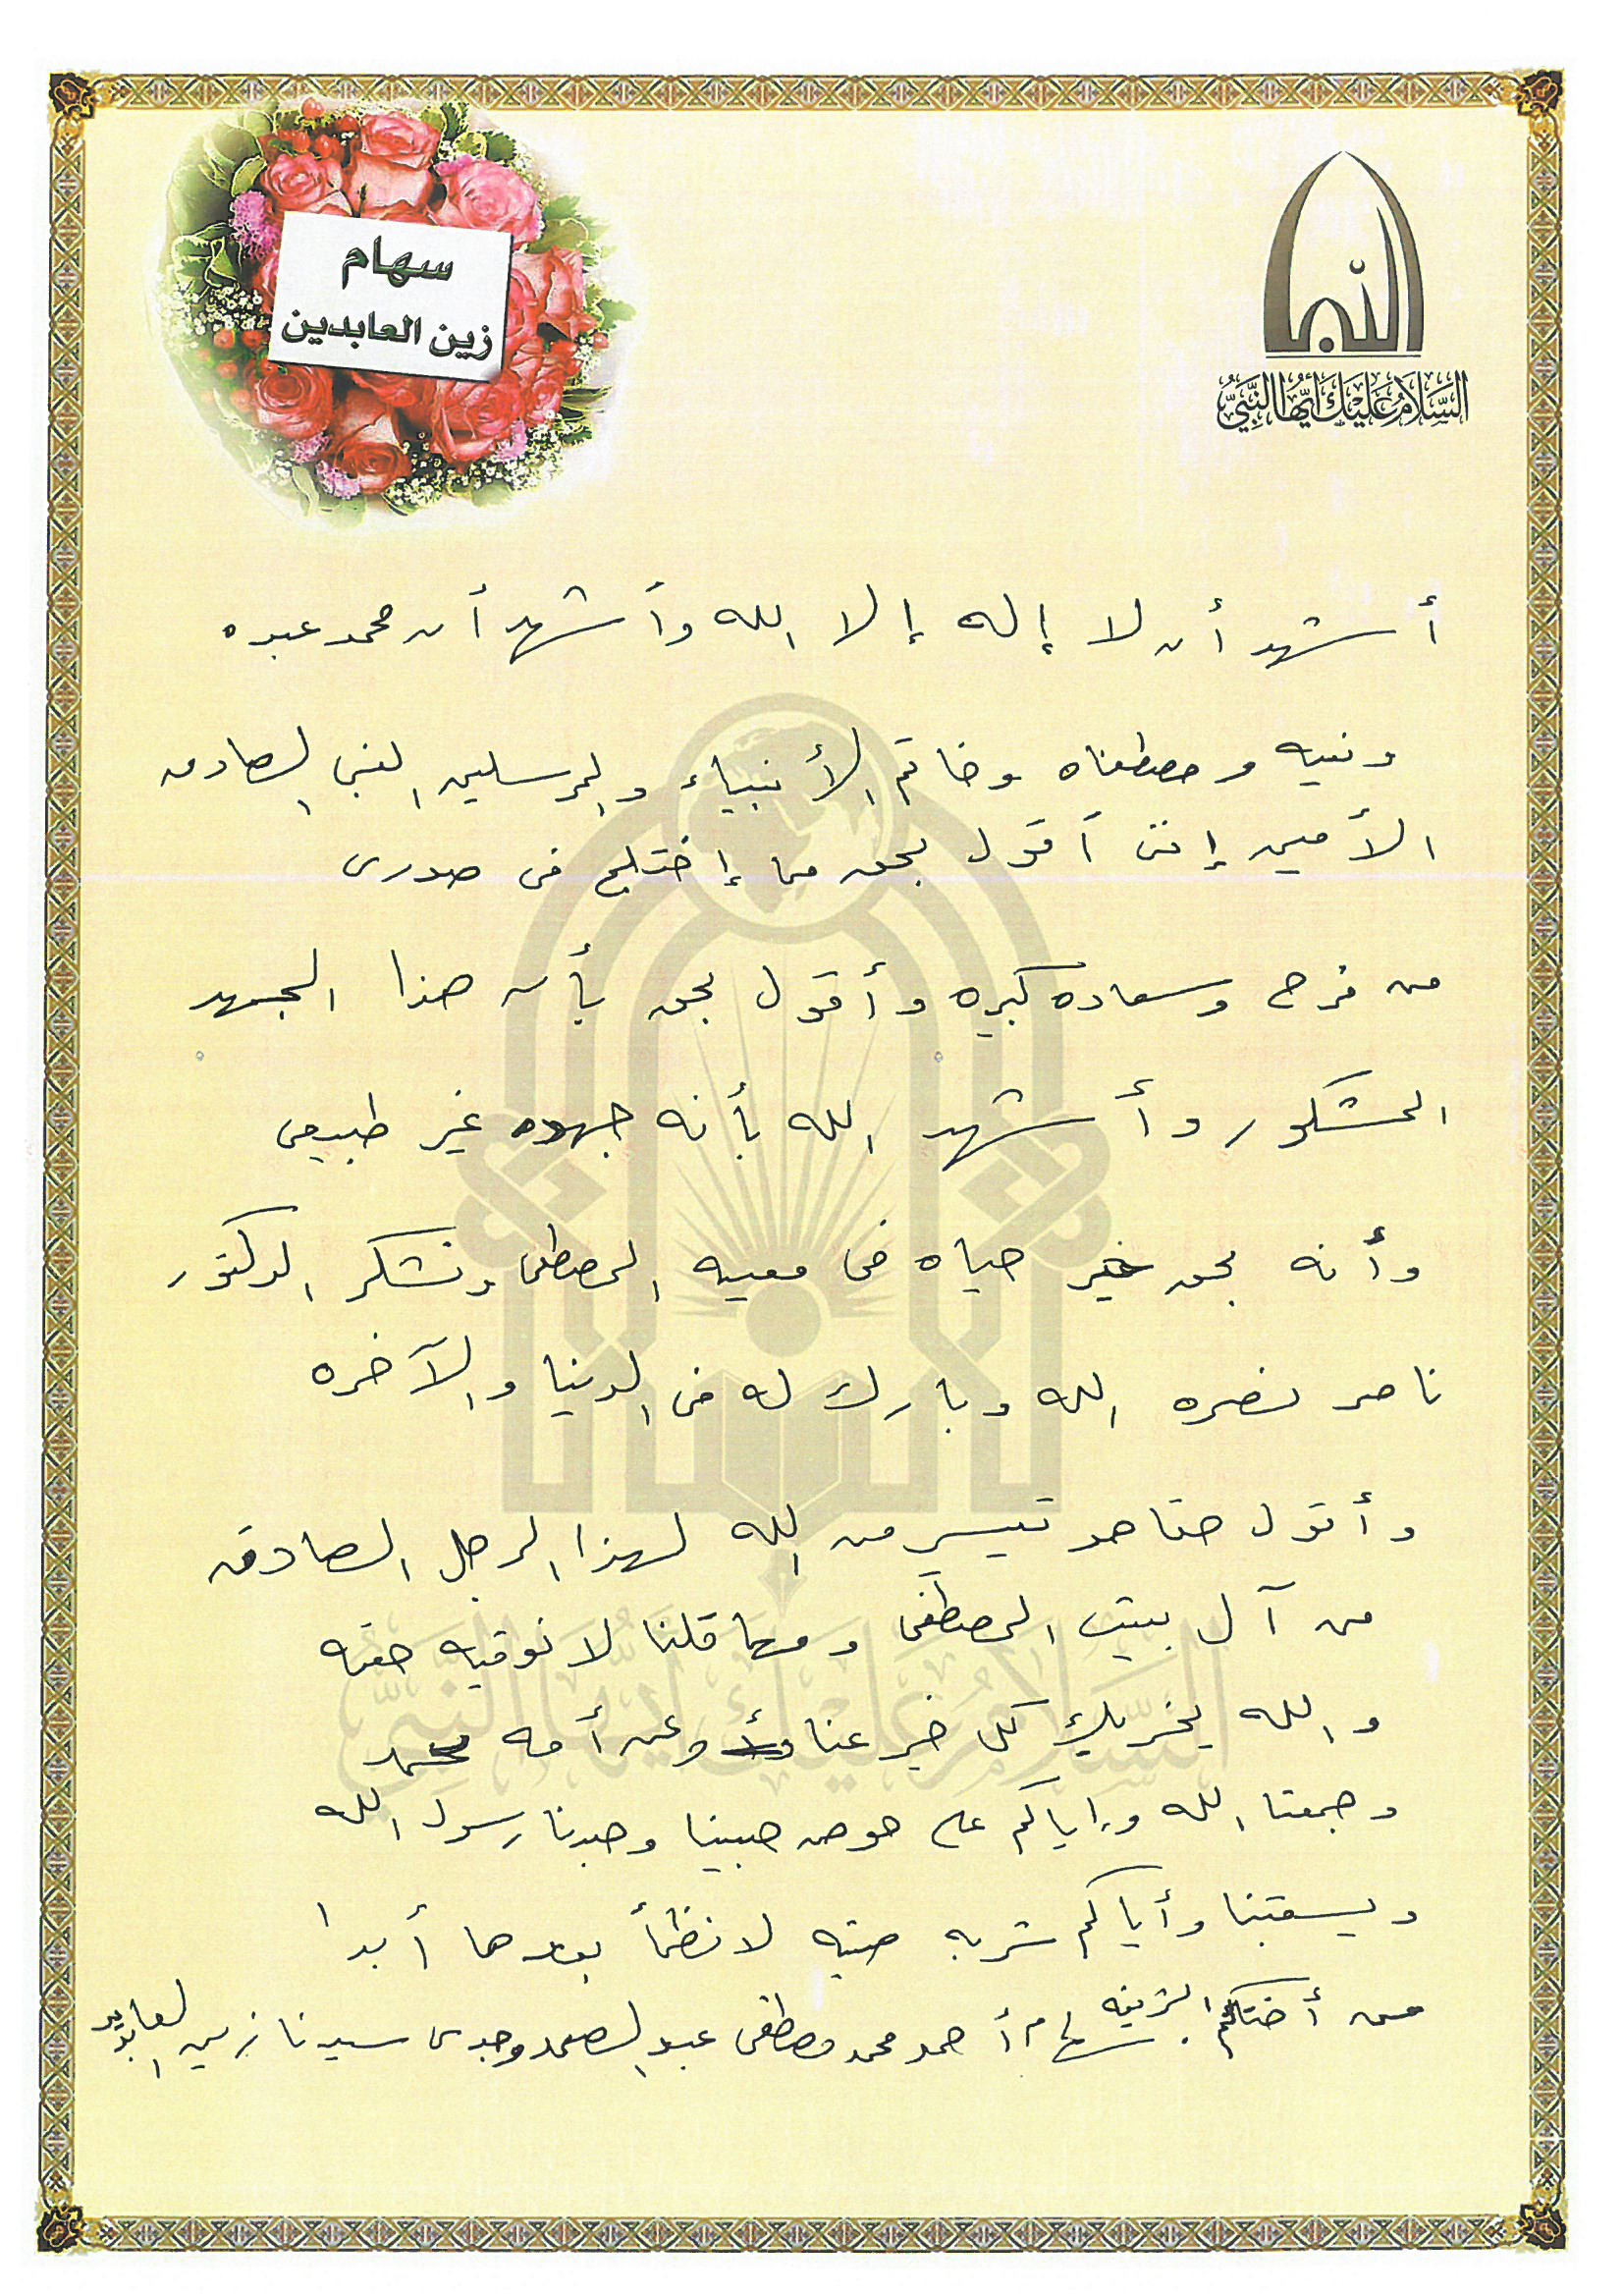 سهام
زين العابدين
السَّلَامُ عَلَيْكَ أَيُّهَا النَّبِيُّ
أشهد أن لا إله إلا الله وأشهد أن محمد عبده
ونبيه ومصطفاه وخاتم الأنبياء والمرسلين النبى الصادق
الأمين إننى أقول بحق ما إختلج فى صدرى
من فرح وسعاده كبيره وأقول بحق بأن هذا الجهد
المشكور وأشهد الله بأنه جهده غير طبيعى
وأنه بحق خير حياه فى معيه المصطفى ونشكر الدكتور
ناصر نصره الله وبارك له فى الدنيا والآخره
وأقول حقا هو تيسير من الله لهذا الرجل الصادق
من آل بيت المصطفى ومهما قلنا لا نوفيه حقه
والله يجزيك كل خير عنا وعن أمه محمد
وجمعنا الله وإياكم على حوض حبيبنا وجدنا رسول الله
ويسقينا وأياكم شربه هنيه لا نظمأ بعدها أبدا
من أختكم الشريفه سهام أحمد محمد مصطفى عبد الصمد وجدى سيدنا زين العابدين